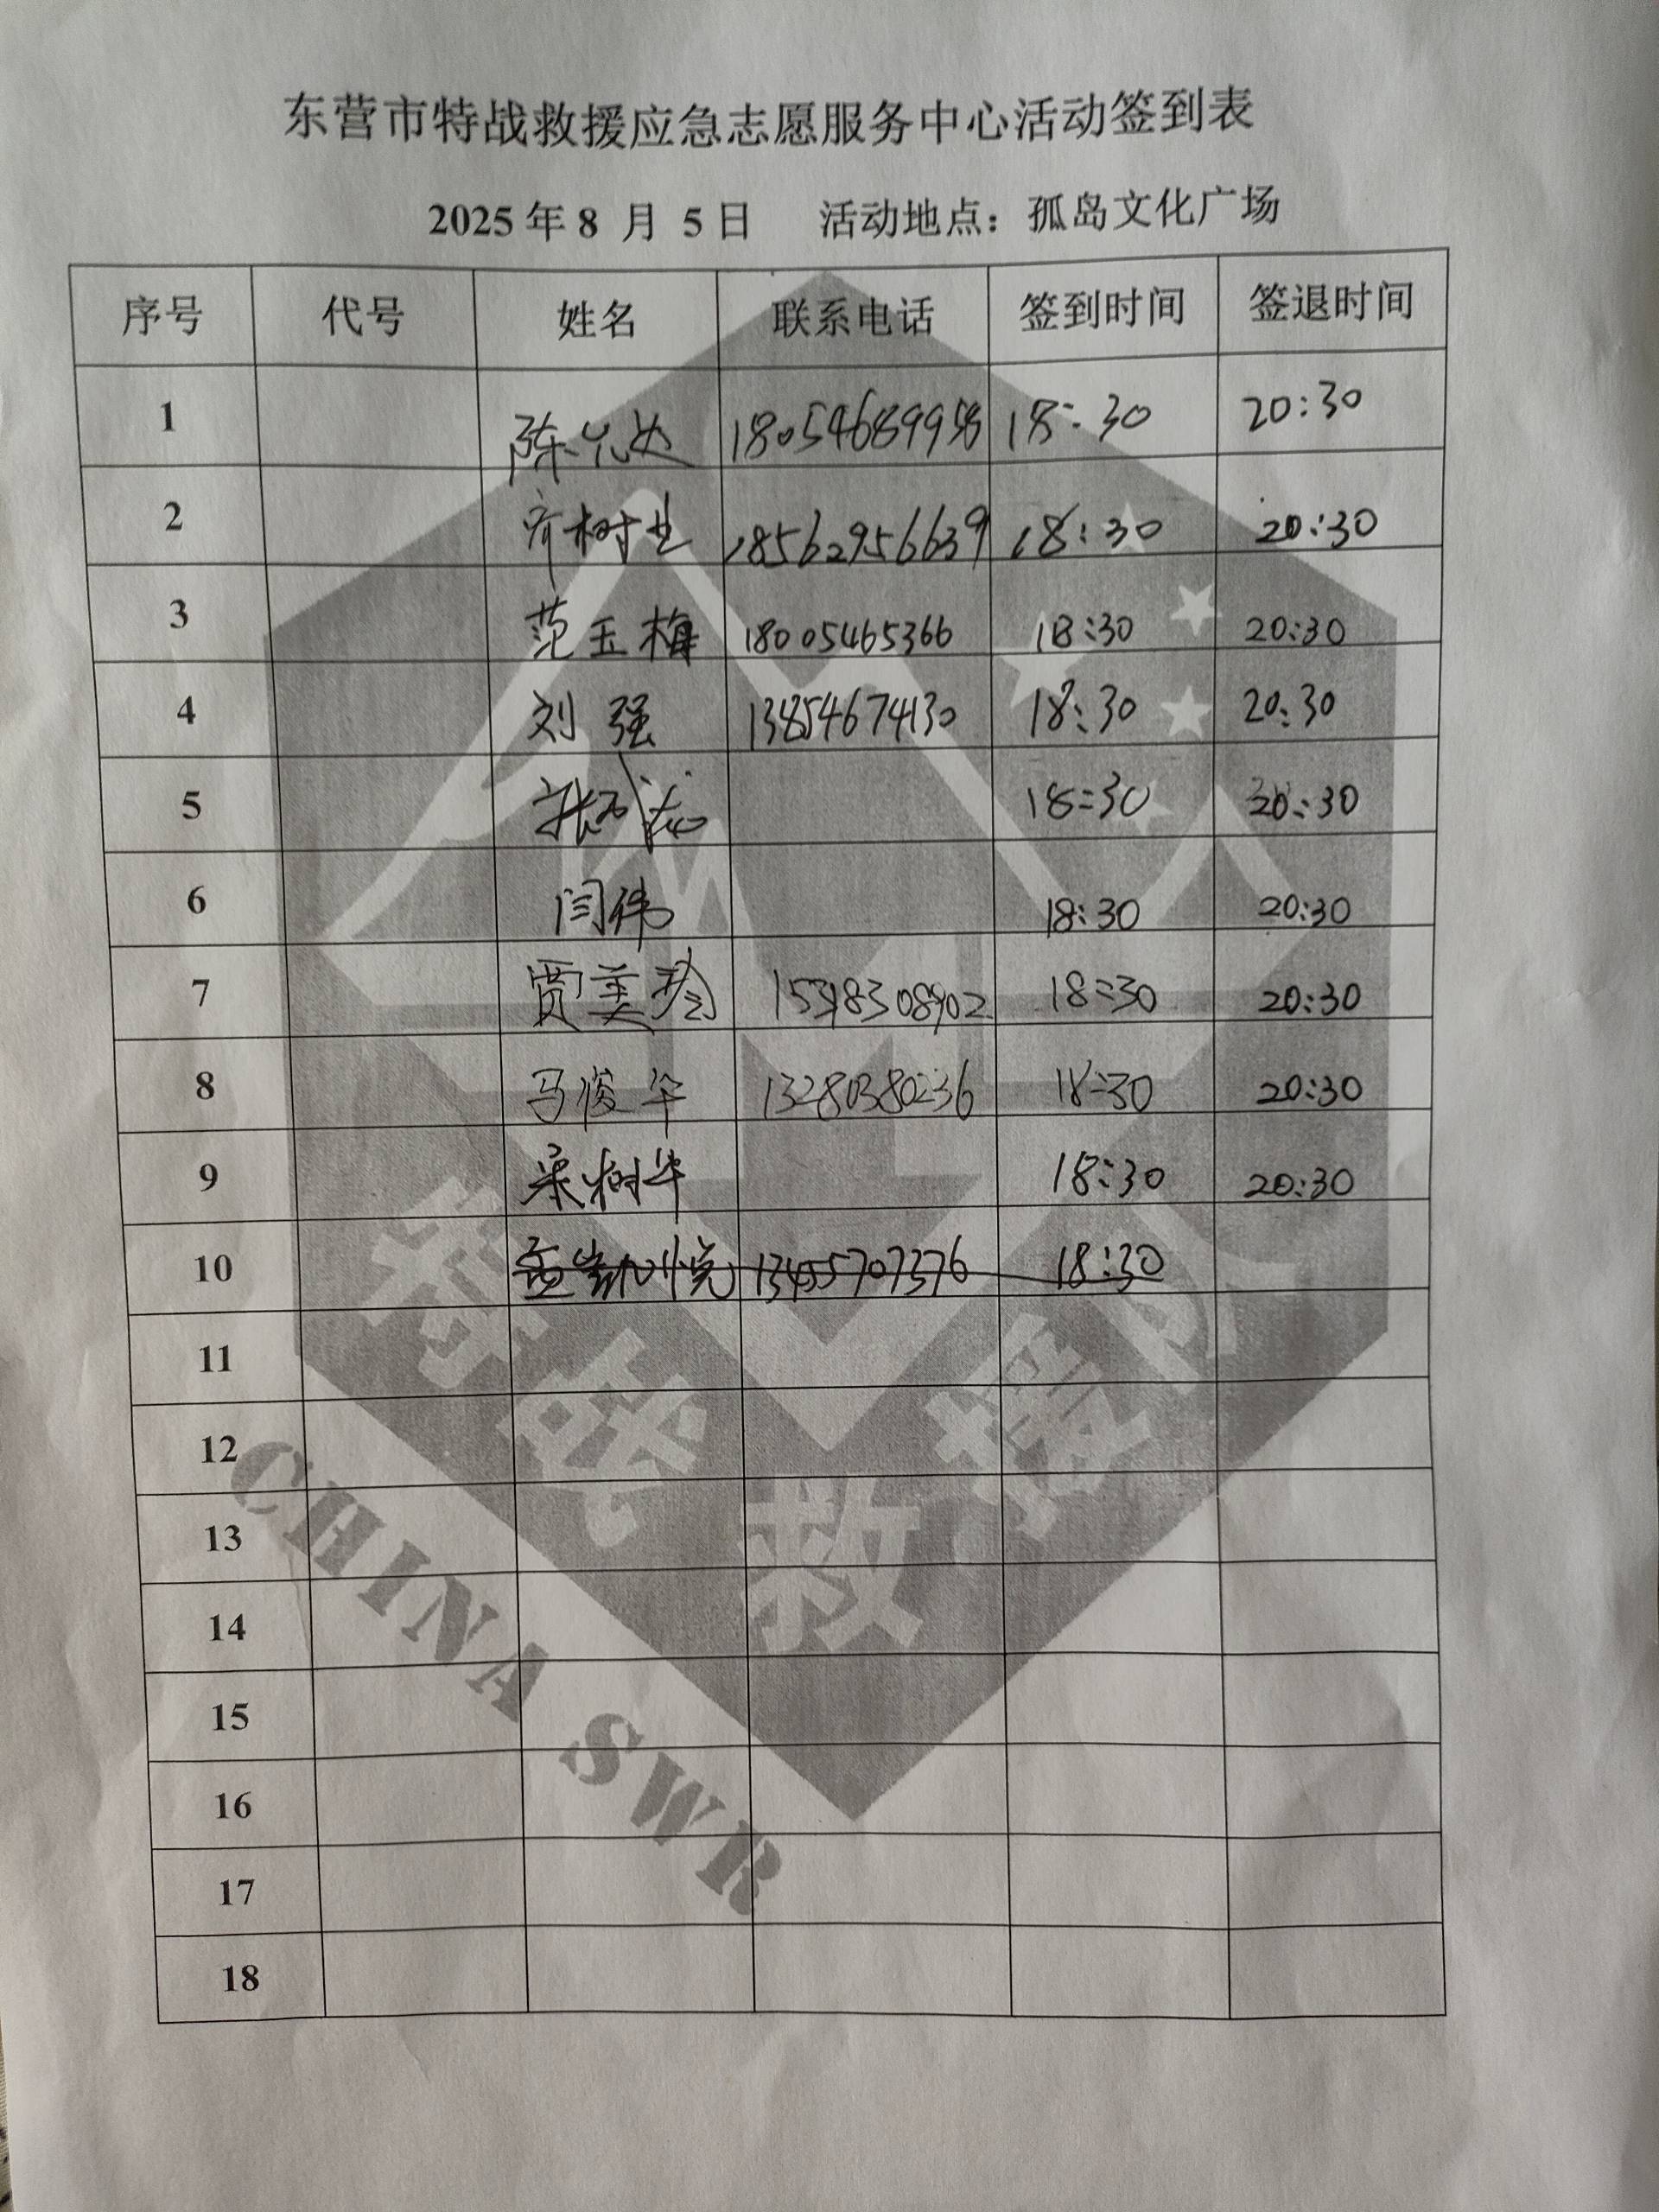 东营市特战救援应急志愿服务中心活动签到表
2025年8 月 5日 活动地点：孤岛文化广场
序号 代号 姓名 联系电话 签到时间 签退时间
1 陈 18:30 20:30
2 齐树生 18562956639 18:30 20:30
3 范玉梅 18005465366 18:30 20:30
4 刘强 13854674130 18:30 20:30
5 18:30 20:30
6 闫伟 18:30 20:30
7 贾美玲 18:30 20:30
8 马俊华 13280380236 18:30 20:30
9 梁树华 18:30 20:30
10 13455707376 18:30
11
12
13
14
15
16
17
18
特战救援队
CHINA SWR